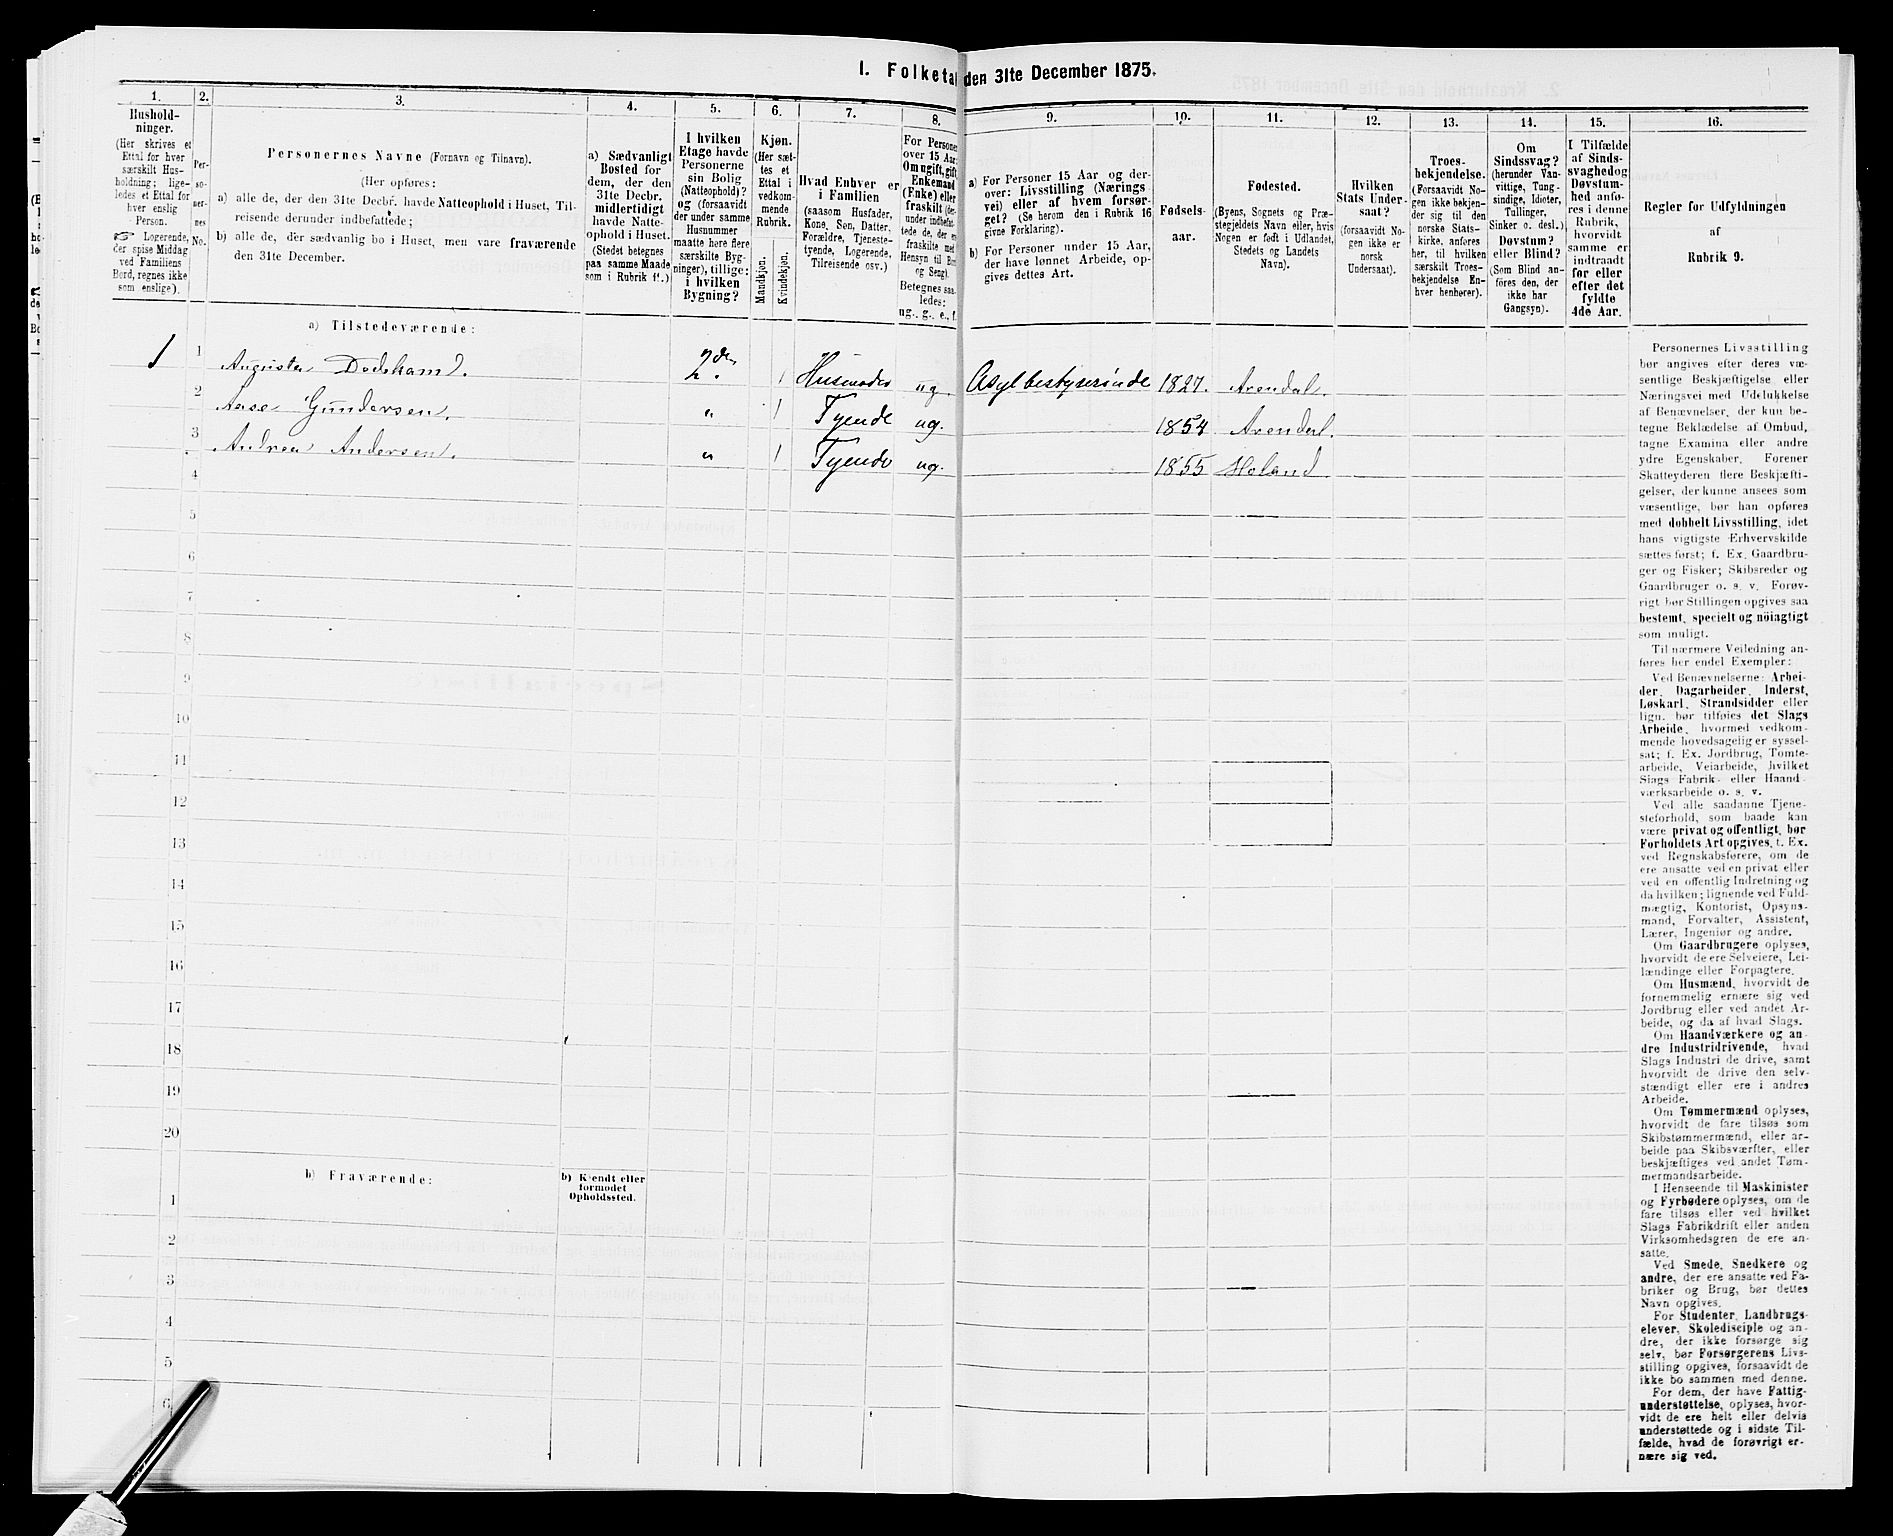 1. Folketal den 31te December 1875.
1. 2. 3. 4. 5. 6. 7. 8. 9. 10. 11. 12. 13. 14. 15. 16.
Hushold-
ninger.
(Her skrives et
Ettal for hver
særskilt Hus-
holdning; lige-
ledes et Ettal for
hver enslig
Person.
☞ Logerende,
der spise Middag
ved Familiens
Bord, regnes ikke
som enslige).
Per-
so-
ner-
nes
No.
Personernes Navne (Fornavn og Tilnavn).
(Her opføres:
a) alle de, der den 31te Decbr. havde Natteophold i Huset, Til-
reisende derunder indbefattede;
b) alle de, der sædvanlig bo i Huset, men vare fraværende
den 31te December.
a) Sædvanligt
Bosted for
dem, der den
31te Decbr.
midlertidigt
havde Natte-
ophold i Huset.
(Stedet betegnes
paa samme Maade
som i Rubrik 11.)
I hvilken
Etage havde
Personerne
sin Bolig
(Natteophold)?
og (forsaavidt
der under samme
Husnummer
maatte høre flere
særskilte Byg-
ninger), tillige:
i hvilken
Bygning?
Kjøn.
(Her sæt-
tes et
Ettal i
vedkom-
mende
Rubrik.
Mandkjøn.
Kvindekjøn.
Hvad Enhver er
i Familien
(saasom Husfader,
Kone, Søn, Datter,
Forældre, Tjeneste-
tyende, Logerende,
Tilreisende osv.)
For Personer
over 15 Aar:
Om ugift, gift,
Enkemand
(Enke) eller
fraskilt (der-
under indbefat-
tede de, der ere
fraskilte med
Hensyn til Bord
og Seng).
Betegnes saa-
ledes:
ug., g., e., f.
a) For Personer 15 Aar og der-
over: Livsstilling (Nærings-
vei) eller af hvem forsør-
get? (Se herom den i Rubrik 16
givne Forklaring).
b) For Personer under 15 Aar,
der have lønnet Arbeide, op-
gives dettes Art.
Fødsels-
aar.
Fødested.
(Byens, Sognets og Præ-
stegjeldets Navn eller, hvis
Nogen er født i Udlandet,
Stedets og Landets
Navn).
Hvilken
Stats Under-
saat?
(forsaavidt No-
gen ikke er
norsk
Undersaat).
Troes-
bekjendelse.
(Forsaavidt No-
gen ikke bekjen-
der sig til den
norske Stats-
kirke, anføres
her, til hvilken
særskilt Troes-
bekjendelse En-
hver henhører).
Om
Sindssvag?
(herunder Van-
vittige, Tung-
sindige, Idioter,
Tullinger,
Sinker o. desl.)
Døvstum?
eller Blind?
(Som Blind an-
føres den, der
ikke har
Gangsyn).
I Tilfælde
af Sinds-
svaghed og
Døvstum-
hed anfø-
res i denne
Rubrik,
hvorvidt
samme er
indtraadt
før eller
efter det
fyldte
4de Aar.
Regler for Udfyldningen
af
Rubrik 9.
a) Tilstedeværende:
1 1 Augusta Dedekam. 2den 1 Husmoder ug. Asylbestyrerinde 1827. Arendal.
2 Aase Gundersen. " 1 Tyende ug. 1854. Arendal.
3 Andrea Andersen. " 1 Tyende ug. 1855 Høland
4
5
6
7
8
9
10
11
12
13
14
15
16
17
18
19
20
b) Fraværende:
b) Kjendt eller
formodet
Opholdssted.
1
2
3
4
5
6
Personernes Livsstilling
bør angives efter deres væ-
sentlige Beskjæftigelse eller
Næringsvei med Udelukkelse
af Benævnelser, der kun be-
tegne Beklædelse af Ombud,
tagne Examina eller andre
ydre Egenskaber. Forener
Skatteyderen flere Beskjæfti-
gelser, der kunne ansees som
væsentlige, bør han opføres
med dobbelt Livsstilling, idet
hans vigtigste Erhvervskilde
sættes først; f. Ex. Gaardbru-
ger og Fisker; Skibsreder og
Gaardbruger o. s. v. Forøv-
rigt bør Stillingen opgives saa
bestemt, specielt og nöiagtigt
som muligt.
Til nærmere Veiledning an-
føres her endel Exempler:
Ved Benævnelserne: Arbei-
der, Dagarbeider, Inderst,
Løskarl, Strandsidder eller
lign. bør tilføies det Slags
Arbeide, hvormed vedkom-
mende hovedsagelig er syssel-
sat; f. Ex. Jordbrug, Tomte-
arbeide, Veiarbeide, hvilket
Slags Fabrik- eller Haand-
værksarbeide o. s. v.
Ved alle saadanne Tjene-
steforhold, som baade kan
være privat og offentligt, bør
Forholdets Art opgives, f. Ex.
ved Regnskabsførere, om de
ere ansatte ved en privat eller
ved en offentlig Indretning og
da hvilken; lignende ved Fuld-
mægtig, Kontorist, Opsyns-
mand, Forvalter, Assistent,
Lærer, Ingeniør og andre.
Om Gaardbrugere oplyses,
hvorvidt de ere Selveiere, Lei-
lændinge eller Forpagtere.
Om Husmænd, hvorvidt de
fornemmelig ernære sig ved
Jordbrug eller ved andet Ar-
beide, og da af hvad Slags.
Om Haandværkere og an-
dre Industridrivende, hvad
Slags Industri de drive, samt
hvorvidt de drive den selv-
stændigt eller ere i andres
Arbeide.
Om Tømmermænd oplyses,
hvorvidt de fare tilsøs som
Skibstømmermænd, eller ar-
beide paa Skibsværfter, eller
beskjæftiges ved andet Tøm-
mermandsarbeide.
I Henseende til Maskinister
og Fyrbødere oplyses, om de
fare tilsøs eller ved hvilket
Slags Fabrikdrift eller anden
Virksomhedsgren de ere an-
satte.
Ved Smede, Snedkere og
andre, der ere ansatte ved Fa-
briker og Brug, bør dettes
Navn opgives.
For Studenter, Landbrugs-
elever, Skoledisciple og an-
dre, der ikke forsørge sig
selv, bør Forsørgerens Livs-
stilling opgives, forsaavidt de
ikke bo sammen med denne.
For dem, der have Fattig-
understøttelse, oplyses, hvor-
vidt de ere helt eller delvis
understøttede og i sidste Til-
fælde, hvad de forøvrigt er-
nære sig ved.